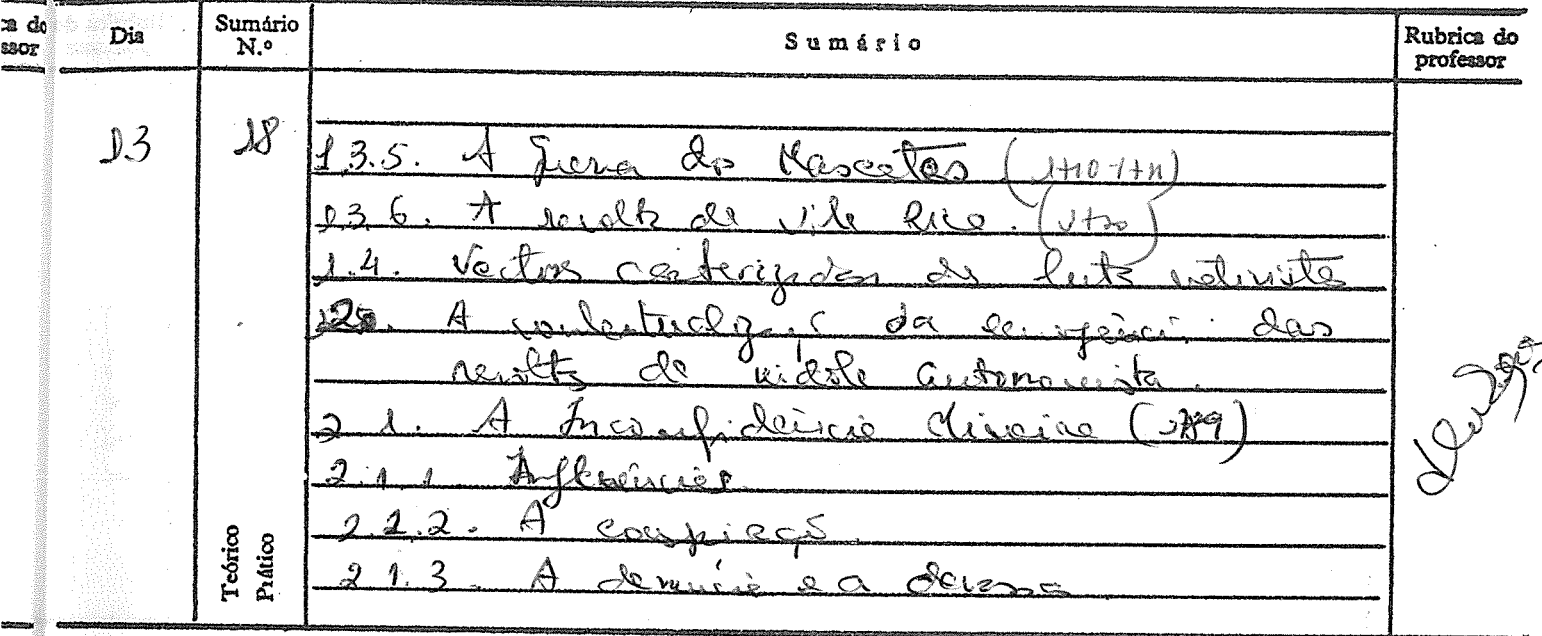 Dia
Sumário N.º
Sumário
Rubrica do professor
13
18
1.3.5. A guerra dos Mascates (1710-1711)
1.3.6. A revolta de Vila Rica. (1720)
1.4. Vectores da luta nativista
A contextualização da emergência das
revoltas de índole autonomista.
2.1. A Inconfidência Mineira (1789)
2.1.1 Influências.
2.1.2. A conspiração.
2.1.3. A denúncia e a devassa
Teórico
Prático